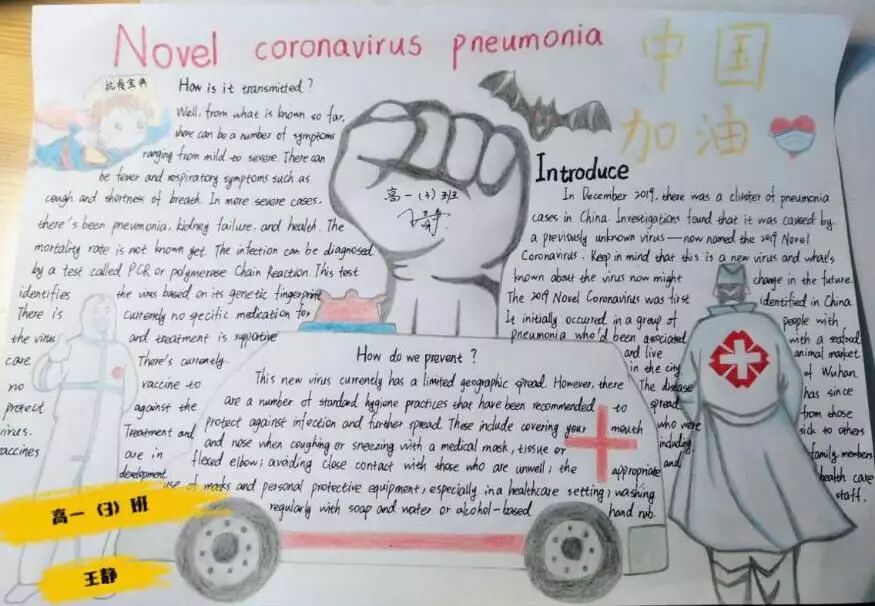 Novel coronavirus pneumonia
中国
加油
抗疫宝典
How is it transmitted?
Well, from what is known so far,
there can be a number of symptoms
ranging from mild to severe. There can
be fever and respiratory symptoms such as
cough and shortness of breath. In more severe cases,
there's been pneumonia, kidney failure, and health. The
mortality rate is not known yet. The infection can be diagnosed
by a test called PCR or polymerase Chain Reaction. This test
identifies the virus based on its genetic fingerprint
There is currenly no specific medication for
the virus and treatment is suppative
care. There's currently.
no vaccine to
protect against the
virus. Treatment and
vaccines are in
development
高一(3)班
Introduce
In December 2019, there was a cluster of pneumonia
cases in China. Investigations found that it was caused by
a previously unknown virus—now named the 2019 Novel
Coronavirus. Keep in mind that this is a new virus and what's
known about the virus now might change in the future.
The 2019 Novel Coronavirus was first identified in China.
It initially occurred in a group of people with
pneumonia who'd been associated with a seafood
and live animal market
in the city of Wuhan.
The disease has since
spread from those
who were sick to others
including family members
and health care
staff.
How do we prevent?
This new virus currenly has a limited geographic spread. However, there
are a number of standard hygiene practices that have been recommended to
protect against infection and further spread. These include covering your mouth
and nose when coughing or sneezing with a medical mask, tissue or
flexed elbow; avoiding close contact with those who are unwell; the appropriate
use of masks and personal protective equipment, especially in a healthcare setting; washing
regularly with soap and water or alcohol-based hand rub.
高一(3)班
王静